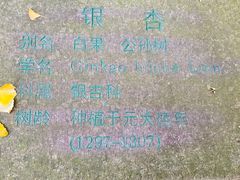 银杏
别名 白果 公孙树
学名 Ginkgo biloba Linn
科属 银杏科
树龄 种植于元大德年
(1297-1307)